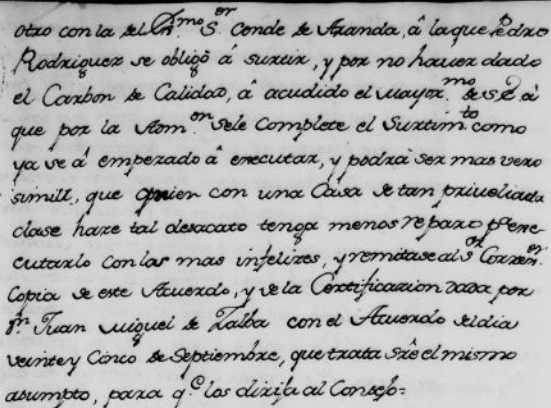 otro con la del Exmo. Sor. Conde de Aranda, â la que Pedro
Rodriguez se obligò â surtir, y por no haver dado
el Carbon de Calidad, â acudido el mayormo. de S.E. â
que por la Admon. sele Complete el Surtimto. como
ya se â empezado â executar, y podrà ser mas vero
simill, que quien con una Casa de tan priveliada
clase hace tal desacato tenga menos reparo pa. exe-
cutarlo con los mas infelizes, y remitase al Sor. Correxor.
Copia de este Acuerdo, y de la Certificazion dada por
Dn. Juan Miguel de Zalba con el Acuerdo del dia
veinte y Cinco de Septiembre, que trata sre el mismo
asumpto, para qe. los dirija al Consejo=